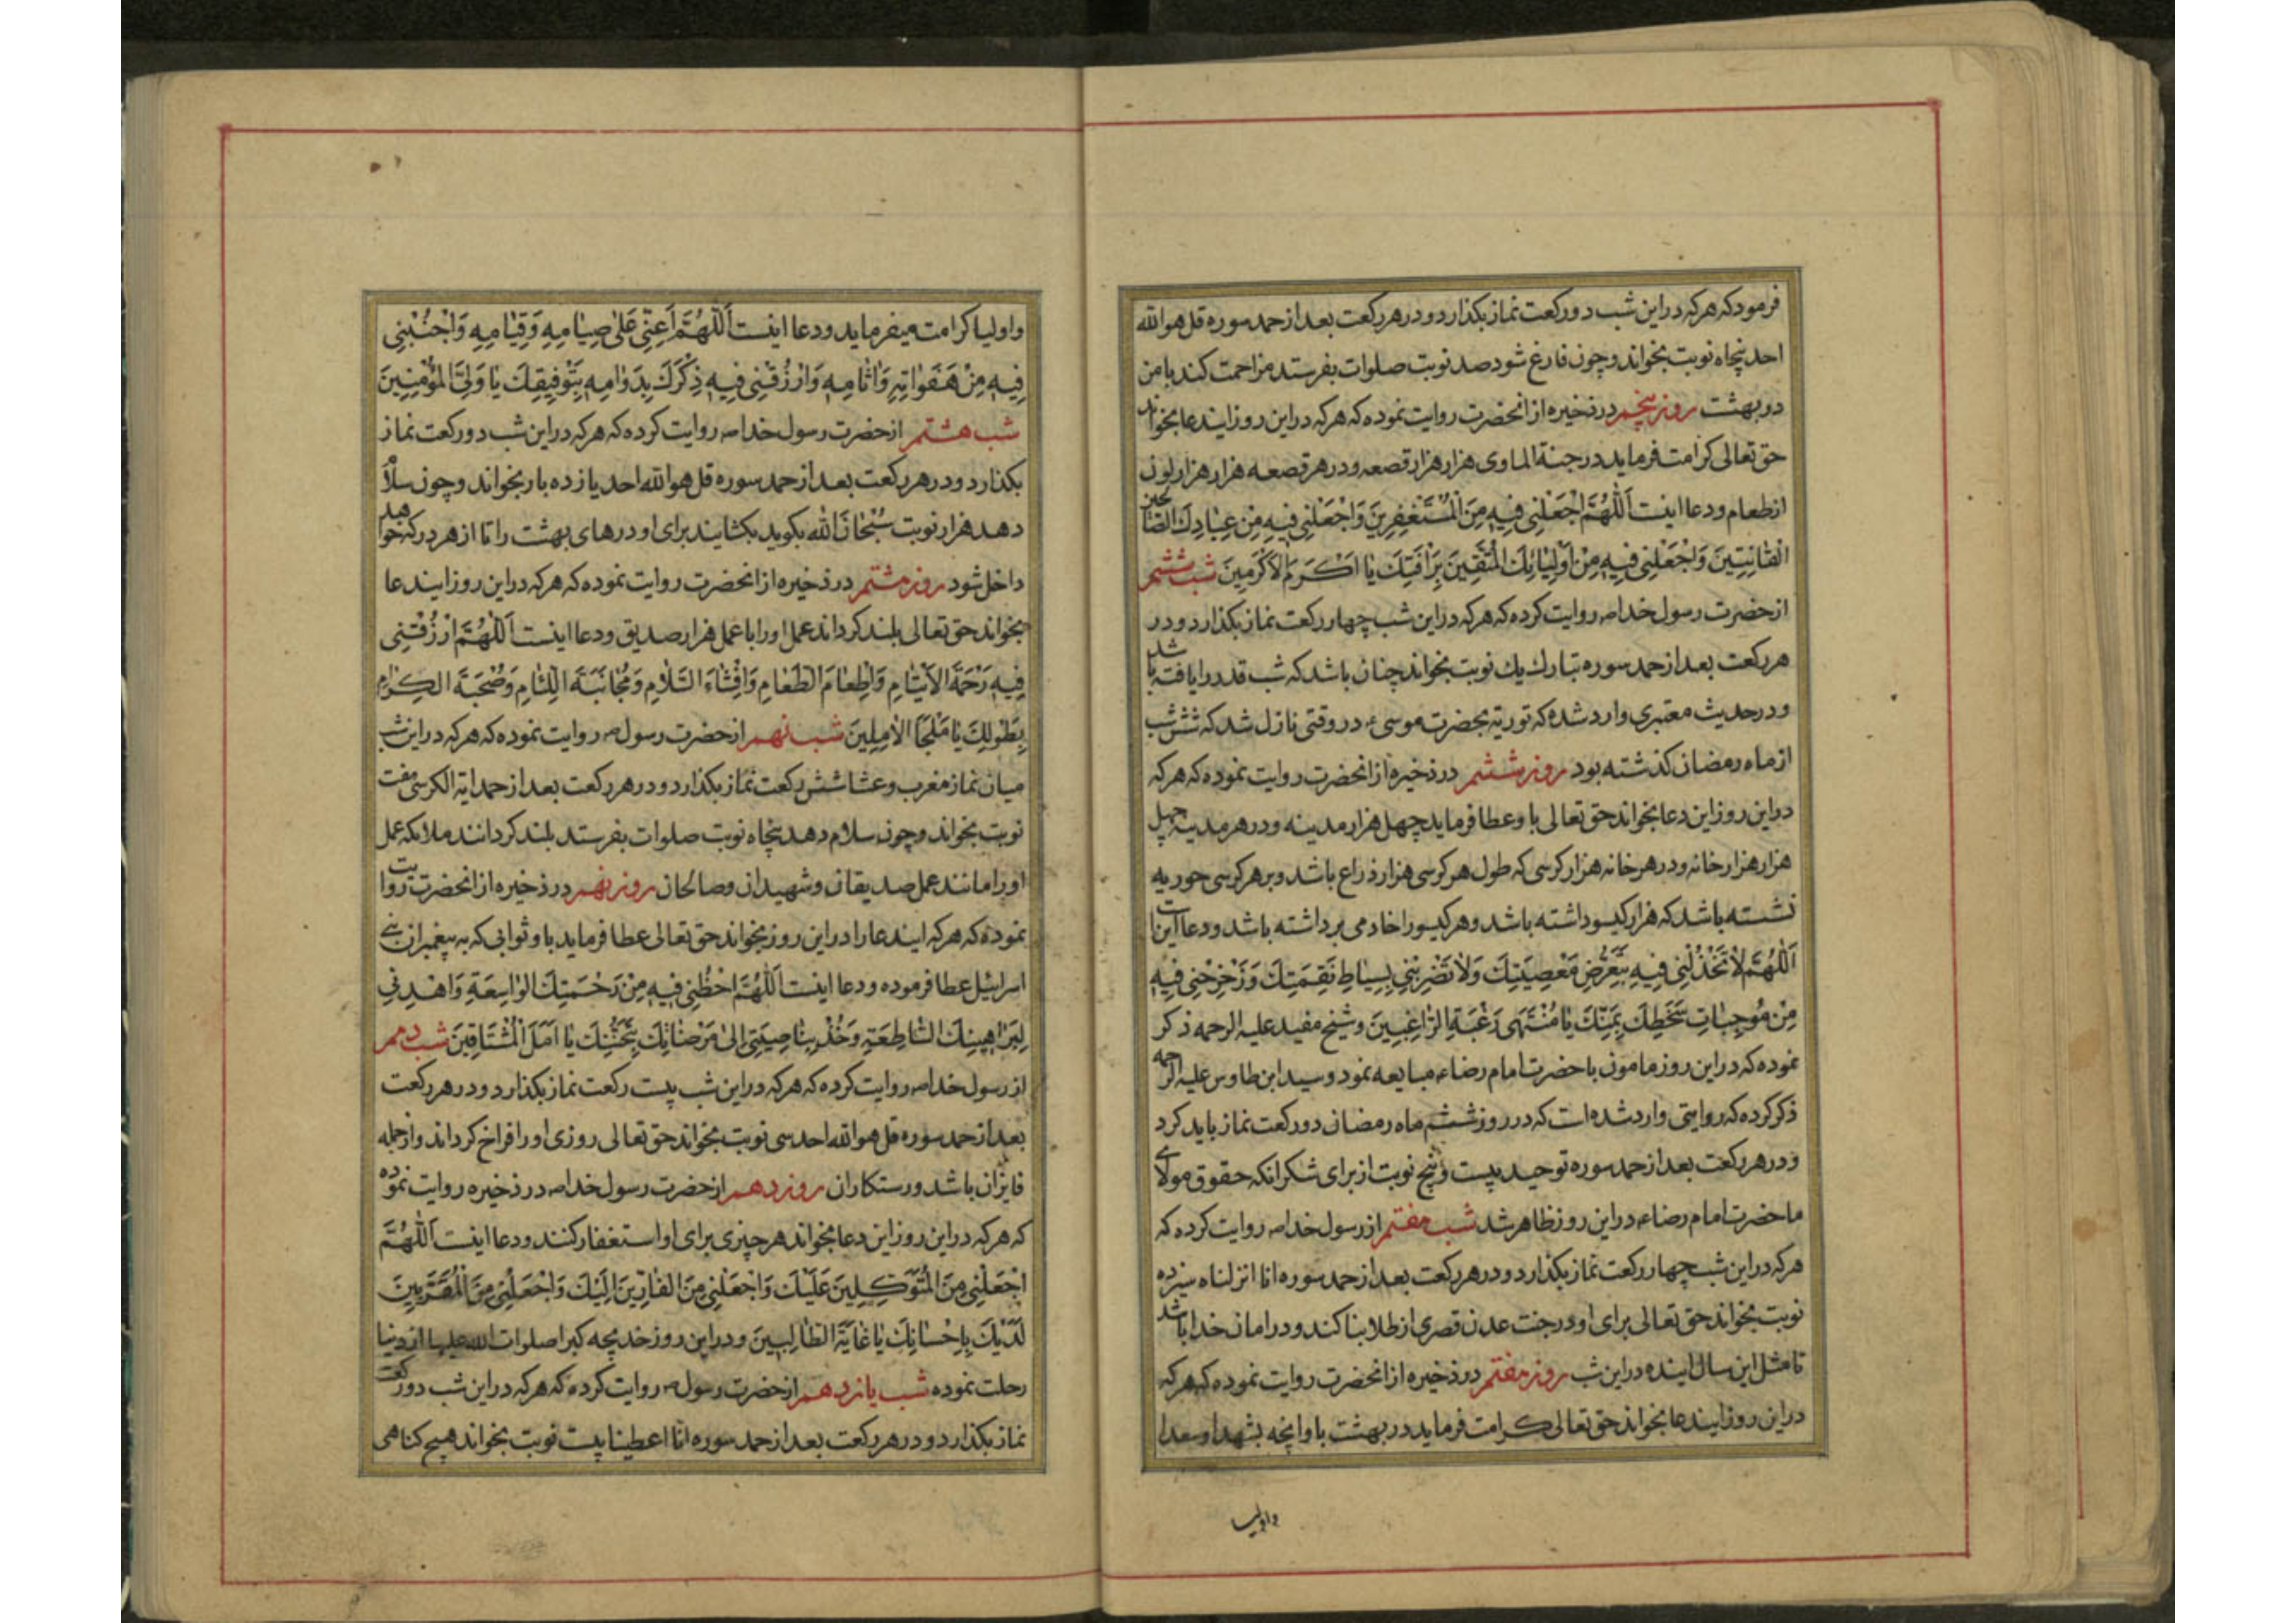 فرمود که هر که در این شب دو رکعت نماز بکذارد و در هر رکعت بعد از حمد سوره قل هو الله
احد پنجاه نوبت بخواند و چون فارغ شود صد نوبت صلوات بفرستد مزاحمت کند با من
در بهشت روز پنجم در ذخیره از انحضرت روایت نموده که هر که در این روز ایندعا بخواند
حق تعالی کرامت فرماید در جنة الماوی هزار هزار قصعه و در هر قصعه هزار هزار لون
از طعام و دعا اینست اَللّهُمَّ اجْعَلْنِی فِیهِ مِنَ الْمُسْتَغْفِرِینَ وَاجْعَلْنِی فِیهِ مِنْ عِبَادِكَ الصّالحین
الْقانِتِینَ وَاجْعَلْنِی فِیهِ مِنْ اَوْلِیائِكَ الْمُتَّقِینَ بِرَأْفَتِكَ یا اَکْرَمَ الاَکْرَمِینَ شب ششم
از حضرت رسول خدا ص روایت کرده که هر که در این شب چهار رکعت نماز بکذارد و در
هر رکعت بعد از حمد سوره تبارك یك نوبت بخواند چنان باشد که شب قدر را یافته باشد
و در حدیث معتبری وارد شده که توریة بحضرت موسی ع در وقتی نازل شد که شش شب
از ماه رمضان کذشته بود روز ششم در ذخیره از انحضرت روایت نموده که هر که
در این روز این دعا بخواند حق تعالی باو عطا فرماید چهل هزار مدینه و در هر مدینه چهل
هزار هزار خانه و در هر خانه هزار کرسی که طول هر کرسی هزار ذراع باشد و بر هر کرسی حوریه
نشسته باشد که هزار کیسو داشته باشد و هر کیسو را خادمی برداشته باشد و دعا این است
اَللّهُمَّ لا تَخْذُلْنِی فِیهِ بِتَعَرُّضِ مَعْصِیَتِكَ وَلا تَضْرِبْنِی بِسِیاطِ نَقِمَتِكَ وَزَحْزِحْنِی فِیهِ
مِنْ مُوجِباتِ سَخَطِكَ بِمَنِّكَ یا مُنْتَهَی رَغْبَةِ الرّاغِبِینَ و شیخ مفید علیه الرحمه ذکر
نموده که در این روز مامون با حضرت امام رضا ع مبایعه نمود و سید ابن طاوس علیه الرحمه
ذکر کرده که روایتی وارد شده است که در روز ششم ماه رمضان دو رکعت نماز باید کرد
و در هر رکعت بعد از حمد سوره توحید بیست و پنج نوبت از برای شکر انکه حقوق مولای
ما حضرت امام رضا ع در این روز ظاهر شد شب هفتم از رسول خدا ص روایت کرده که
هر که در این شب چهار رکعت نماز بکذارد و در هر رکعت بعد از حمد سوره انا انزلناه سیزده
نوبت بخواند حق تعالی برای او در جنت عدن قصری از طلا بنا کند و در امان خدا باشد
تا مثل این سال اینده در این شب روز هفتم در ذخیره از انحضرت روایت نموده که هر که
در این روز ایندعا بخواند حق تعالی کرامت فرماید در بهشت باو انچه بشهدا و سعدا
و اولیا
و اولیا کرامت میفرماید و دعا اینست اَللّهُمَّ اَعِنِّی عَلی صِیامِهِ وَقِیامِهِ وَاجْنُبْنِی
فِیهِ مِنْ هَفَواتِهِ وَاثامِهِ وَارْزُقْنِی فِیهِ ذِکْرَكَ بِدَوامِهِ بِتَوْفِیقِكَ یا وَلِیَّ الْمُؤْمِنِینَ
شب هشتم از حضرت رسول خدا ص روایت کرده که هر که در این شب دو رکعت نماز
بکذارد و در هر رکعت بعد از حمد سوره قل هو الله احد یازده بار بخواند و چون سلام
دهد هزار نوبت سُبْحانَ الله بکوید بکشایند برای او درهای بهشت را تا از هر در که خواهد
داخل شود روز هشتم در ذخیره از انحضرت روایت نموده که هر که در این روز ایندعا
بخواند حق تعالی بلند کرداند عمل او را با عمل هزار صدیق و دعا اینست اَللّهُمَّ ارْزُقْنِی
فِیهِ رَحْمَةَ الاَیْتامِ وَاِطْعامَ الطَّعامِ وَاِفْشاءَ السَّلامِ وَمُجانَبَةَ اللِّئامِ وَصُحْبَةَ الکِرامِ
بِطَوْلِكَ یا مَلْجَأَ الامِلِینَ شب نهم از حضرت رسول ص روایت نموده که هر که در این شب
میان نماز مغرب و عشا شش رکعت نماز بکذارد و در هر رکعت بعد از حمد ایة الکرسی هفت
نوبت بخواند و چون سلام دهد پنجاه نوبت صلوات بفرستد بلند کردانند ملائکه عمل
او را مانند عمل صدیقان و شهیدان و صالحان روز نهم در ذخیره از انحضرت روایت
نموده که هر که ایندعا را در این روز بخواند حق تعالی عطا فرماید باو ثوابی که به پیغمبران بنی
اسرائیل عطا فرموده و دعا اینست اَللّهُمَّ احْظُظْنِی فِیهِ مِنْ رَحْمَتِكَ الْواسِعَةِ وَاهْدِنِی
لِبَراهِینِكَ السّاطِعَةِ وَخُذْ بِناصِیَتِی اِلی مَرْضاتِكَ بِتَحَنُّنِكَ یا اَمَلَ الْمُشْتاقِینَ شب دهم
از رسول خدا ص روایت کرده که هر که در این شب بیست رکعت نماز بکذارد و در هر رکعت
بعد از حمد سوره قل هو الله احد سی نوبت بخواند حق تعالی روزی او را فراخ کرداند و از جمله
فایزان باشد و رستکاران روز دهم از حضرت رسول خدا ص در ذخیره روایت نموده
که هر که در این روز این دعا بخواند هر چیزی برای او استغفار کنند و دعا اینست اَللّهُمَّ
اجْعَلْنِی مِنَ الْمُتَوَکِّلِینَ عَلَیْكَ وَاجْعَلْنِی مِنَ الْفارِّینَ اِلَیْكَ وَاجْعَلْنِی مِنَ الْمُقَرَّبِینَ
لَدَیْكَ بِاِحْسانِكَ یا غایَةَ الطّالِبِینَ و در این روز خدیجه کبرا صلوات الله علیها از دنیا
رحلت نموده شب یازدهم از حضرت رسول ص روایت کرده که هر که در این شب دو رکعت
نماز بکذارد و در هر رکعت بعد از حمد سوره انّا اعطینا بیست نوبت بخواند هیچ کناهی